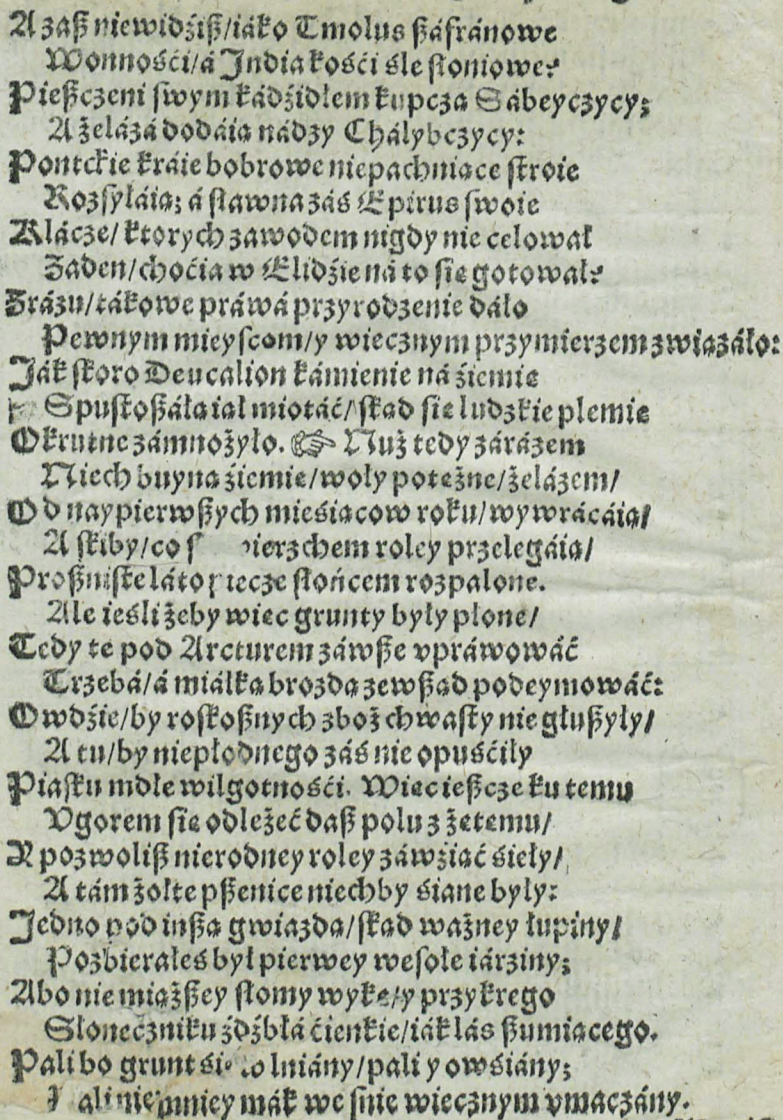 A zaß niewidźiß/iáko Tmolus ßáfránowe
Wonnośći/á India kośći śle słoniowe?
Pießczeni swym kádźidłem kupczą Sábeyczycy;
A żelázá dodáią nádzy Chálybczycy:
Pontckie kráie bobrowe niepachniące stroie
Rozsyłáią; á sławna záś Epirus swoie
Klácze/ ktorych zawodem nigdy nie celował
Żaden/choćia w Elidźie ná to się gotował?
Zrázu/tákowe práwá przyrodzenie dáło
Pewnym mieyscom/y wiecznym przymierzem związáło:
Ják skoro Deucalion kámienie ná źiemię
Spustoßáłą iął miotáć/skąd się ludzkie plemię
Okrutne zámnożyło. ☞ Nuż tedy zárázem
Niech buyną źiemię/woły potężne/żelázem/
Od naypierwßych mieśiącow roku/wywrácáią/
A skiby/co z wierzchem roley przelegáią/
Proßniste láto piecze słońcem rozpalone.
Ale ieśli żeby więc grunty były płone/
Tedy te pod Arcturem záwße vpráwowáć
Trzebá/á miáłką brozdą zewßąd podeymowáć:
Owdźie/by roskoßnych zboż chwasty nie głußyły/
A tu/by niepłodnego záś nie opuśćiły
Piasku mdłe wilgotnośći. Więc ießcze ku temu
Vgorem się odleżeć daß polu z żętemu/
Y pozwoliß nierodney roley záwźiąć śieły/
A tám żołte pßenice niechby śiane były:
Jedno pod inßą gwiazdą/skąd ważney łupiny/
Pozbierałeś był pierwey wesołe iárziny;
Abo nie miąßßey słomy wykę/y przykrego
Słoneczniku źdźbłá ćienkie/iák lás ßumiącego.
Pali bo grunt lniány/pali y owśiány;
niemniey mák we śnie wiecznym vmaczány.